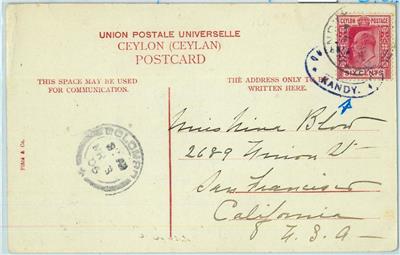 UNION POSTALE UNIVERSELLE
CEYLON (CEYLAN)
POSTCARD
THIS SPACE MAY BE USED
FOR COMMUNICATION.
THE ADDRESS ONLY TO BE
WRITTEN HERE.
CEYLON
SIX CENTS
KANDY.
Miss Nina Blow
2689 Union St
San Francisco
California
U.S.A-
COLOMBO
Plâté & Co.